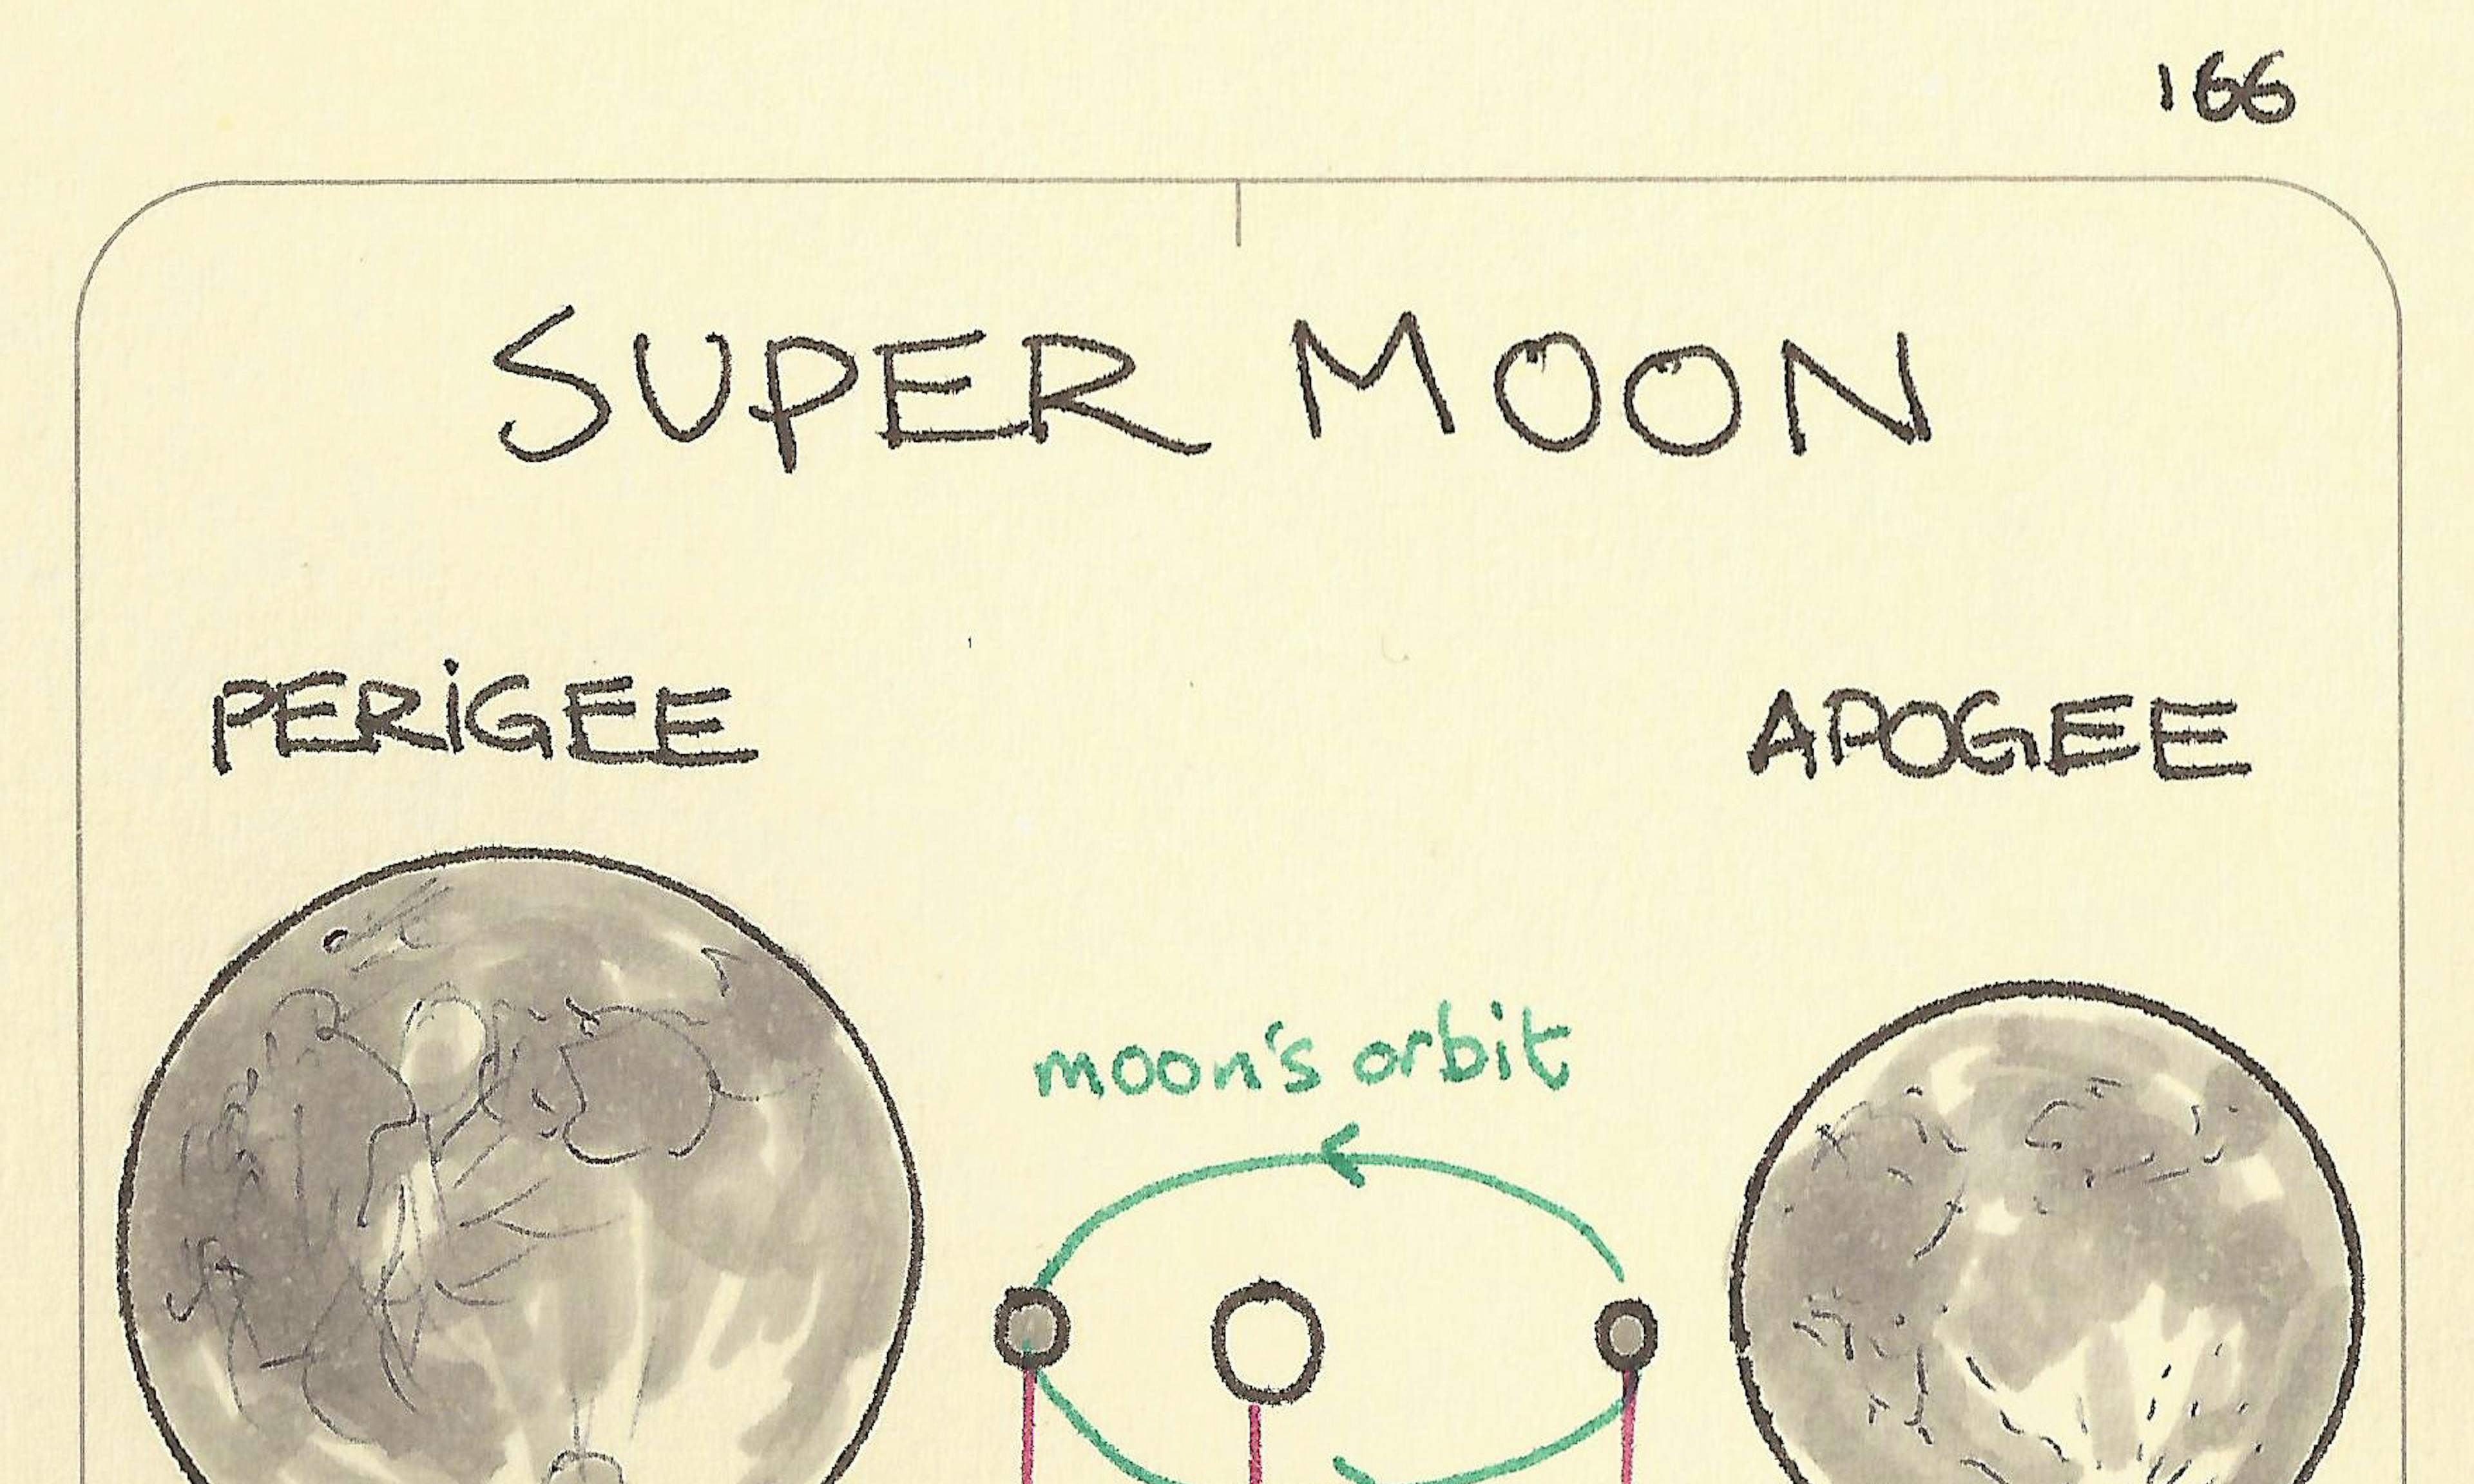 166
SUPER MOON
PERIGEE
APOGEE
moon's orbit